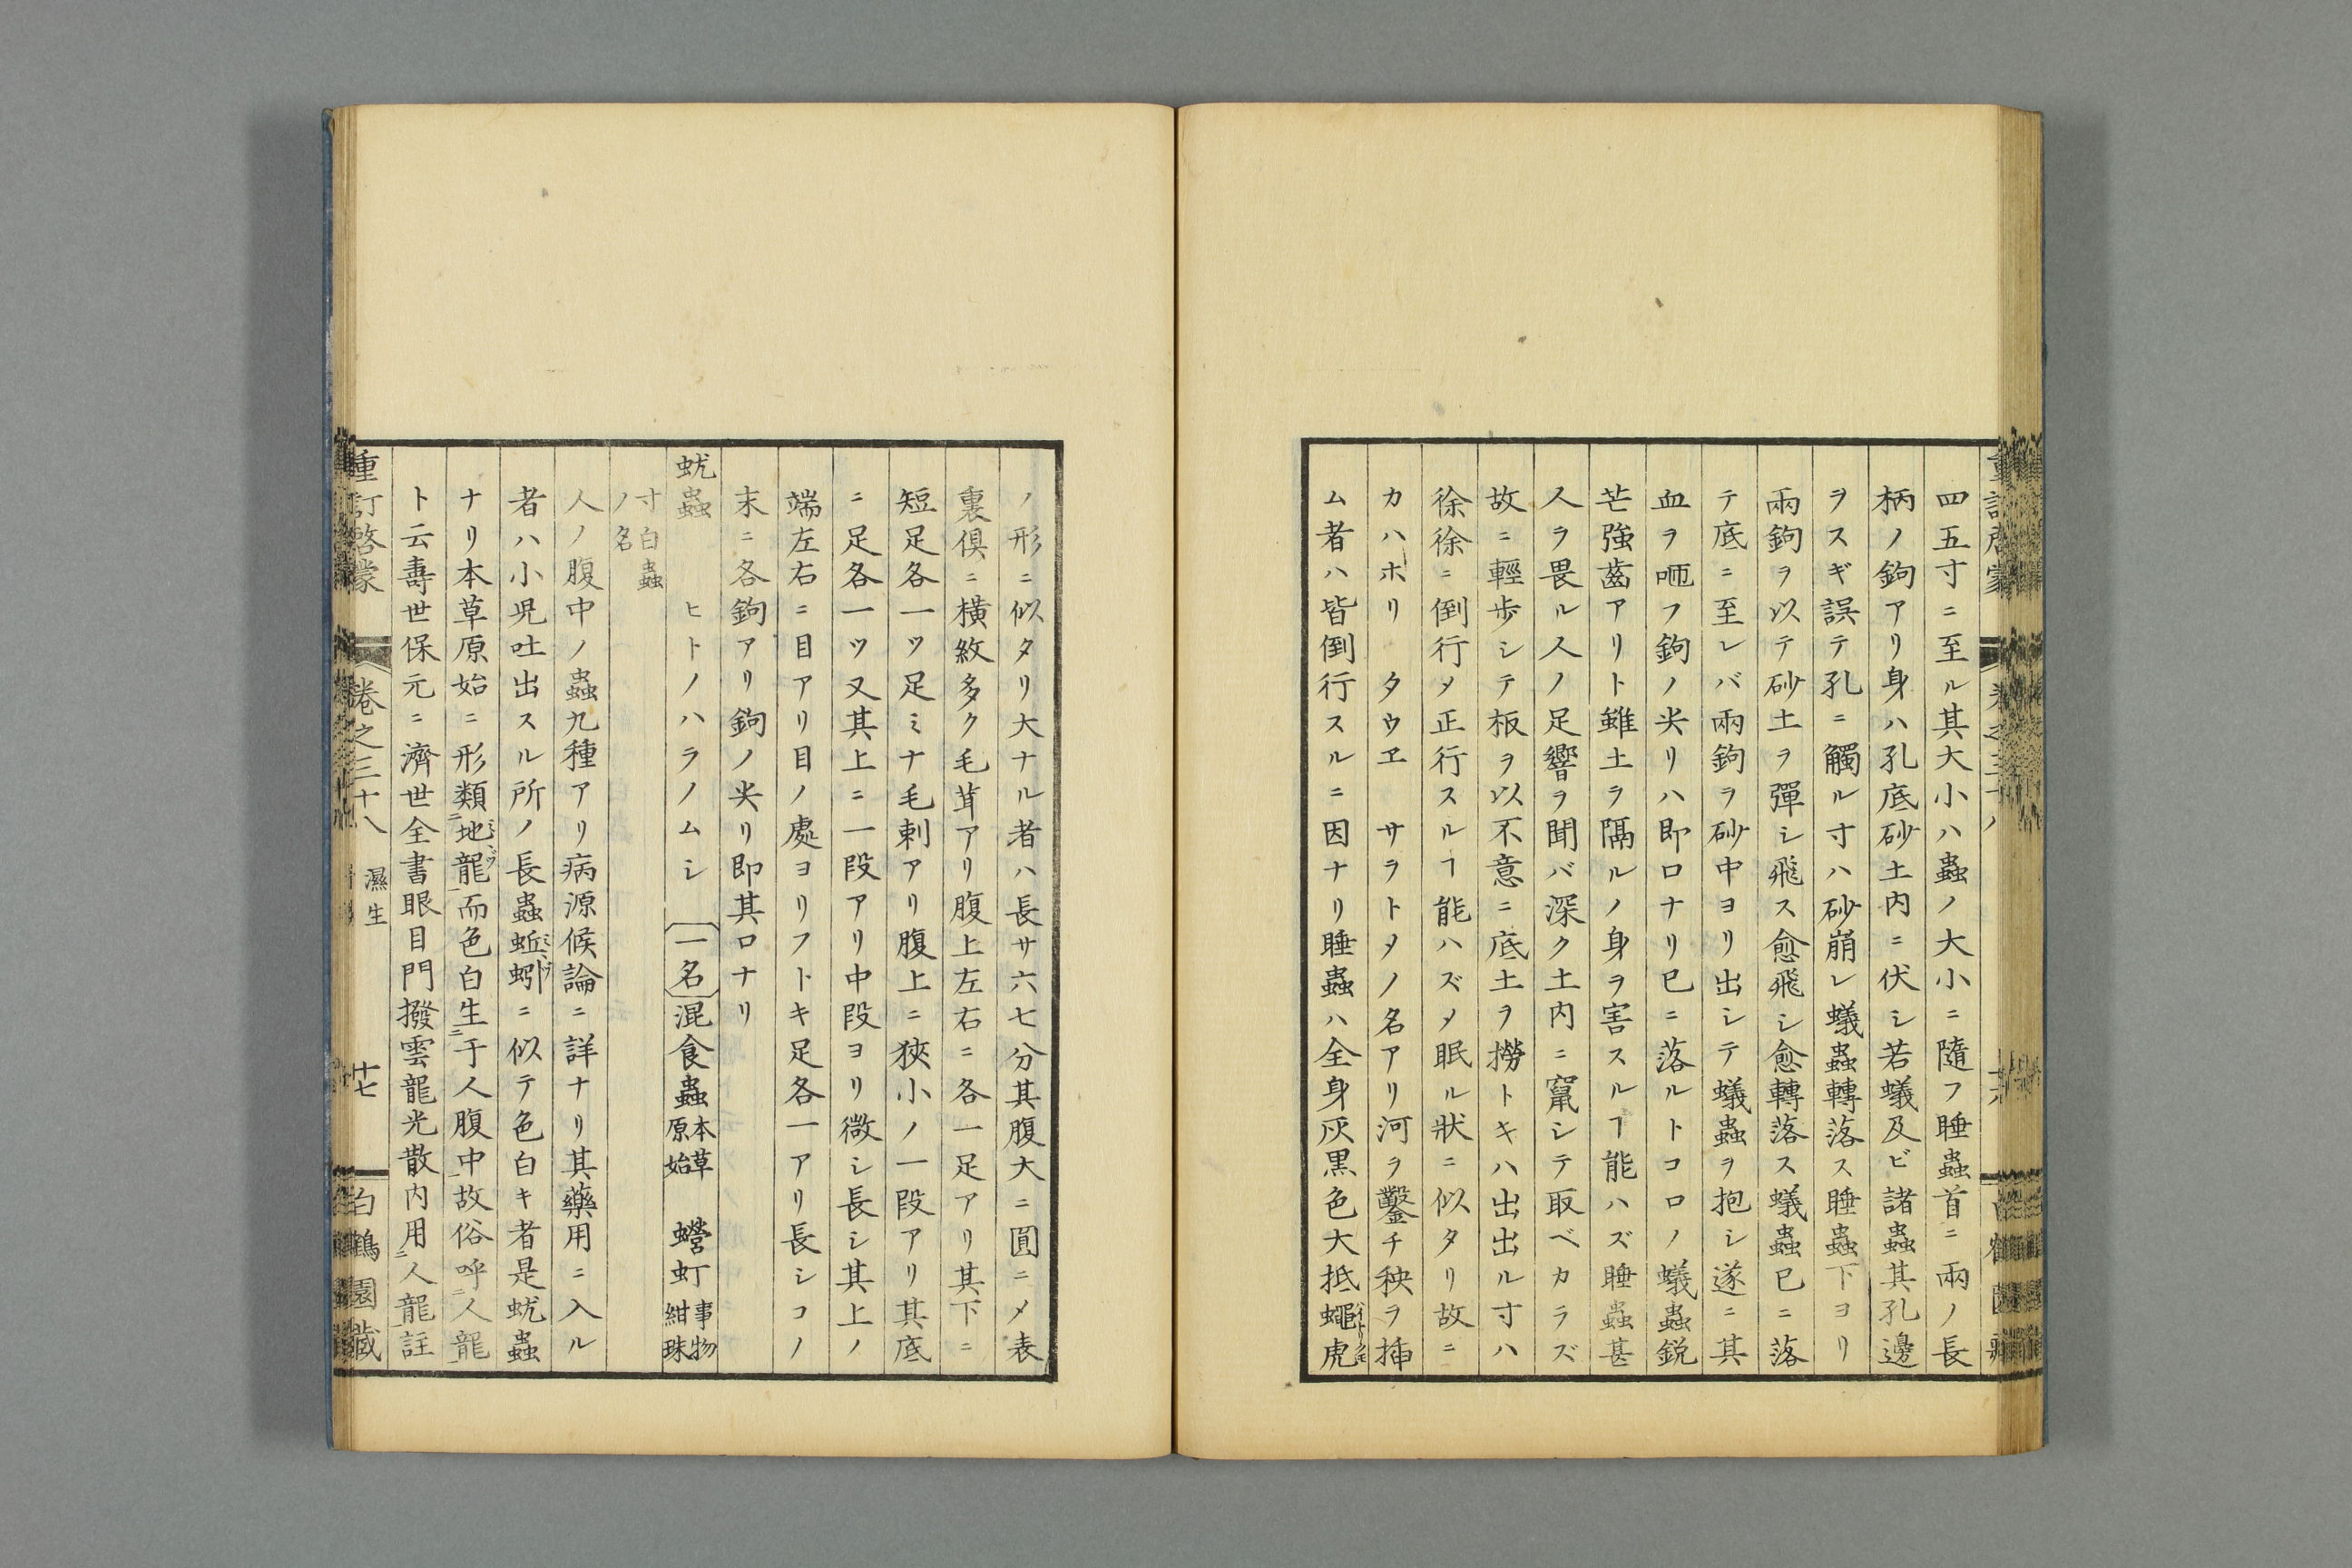 四五寸ニ至ル其大小ハ蟲ノ大小ニ隨フ睡蟲首ニ兩ノ長
柄ノ鉤アリ身ハ孔底砂土内ニ伏シ若蟻及ビ諸蟲其孔邊
ヲスギ誤テ孔ニ觸ル寸ハ砂崩レ蟻蟲轉落ス睡蟲下ヨリ
兩鉤ヲ以テ砂土ヲ彈シ飛ス愈飛シ愈轉落ス蟻蟲已ニ落
テ底ニ至レバ兩鉤ヲ砂中ヨリ出シテ蟻蟲ヲ抱シ遂ニ其
血ヲ咂フ鉤ノ尖リハ即口ナリ已ニ落ルトコロノ蟻蟲鋭
芒強齒アリト雖土ヲ隔ルノ身ヲ害スルヿ能ハズ睡蟲甚
人ヲ畏ル人ノ足響ヲ聞バ深ク土内ニ竄シテ取ベカラズ
故ニ輕歩シテ板ヲ以不意ニ底土ヲ撈トキハ出出ル寸ハ
徐徐ニ倒行メ正行スルヿ能ハズメ眠ル狀ニ似タリ故ニ
カハホリ タウヱ サラトメノ名アリ河ヲ鑿チ秧ヲ挿
ム者ハ皆倒行スルニ因ナリ睡蟲ハ全身灰黒色大抵蠅虎
ノ形ニ似タリ大ナル者ハ長サ六七分其腹大ニ圓ニメ表
裏俱ニ横紋多ク毛茸アリ腹上左右ニ各一足アリ其下ニ
短足各一ツ足ミナ毛刺アリ腹上ニ狹小ノ一段アリ其底
ニ足各一ツ又其上ニ一段アリ中段ヨリ微シ長シ其上ノ
端左右ニ目アリ目ノ處ヨリフトキ足各一アリ長シコノ
末ニ各鉤アリ鉤ノ尖リ即其口ナリ
蚘蟲 ヒトノハラノムシ 〔一名〕混食蟲 本草原始 蠮虰 事物紺珠
寸白蟲ノ名
人ノ腹中ノ蟲九種アリ病源候論ニ詳ナリ其藥用ニ入ル
者ハ小児吐出スル所ノ長蟲蚯蚓ニ似テ色白キ者是蚘蟲
ナリ本草原始ニ形類地龍而色白生于人腹中故俗呼人龍
ト云壽世保元ニ濟世全書眼目門撥雲龍光散内用人龍註
重訂啓蒙 卷之三十八 濕生 十七 白鶴園藏